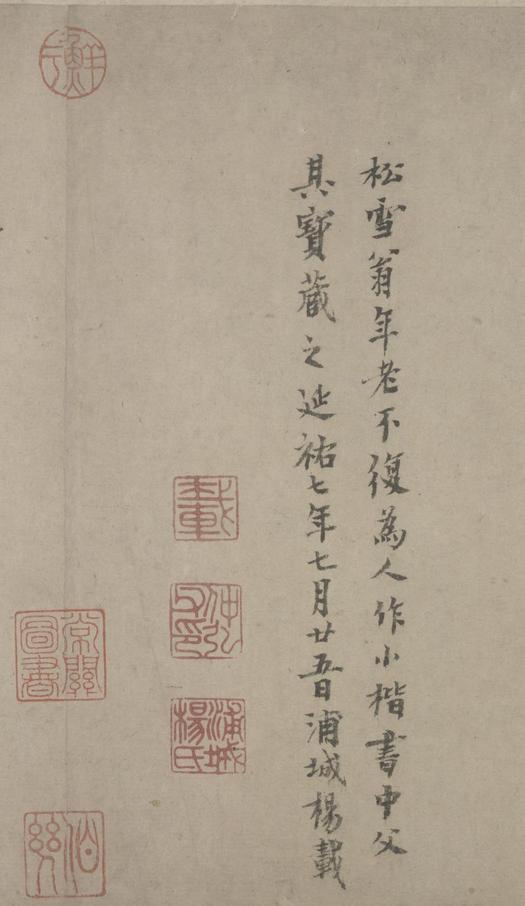 松雪翁年老不復為人作小楷書中父
其寶藏之延祐七年七月廿五日浦城楊載
載
仲弘父印
浦城楊氏
鮮
常關圖書